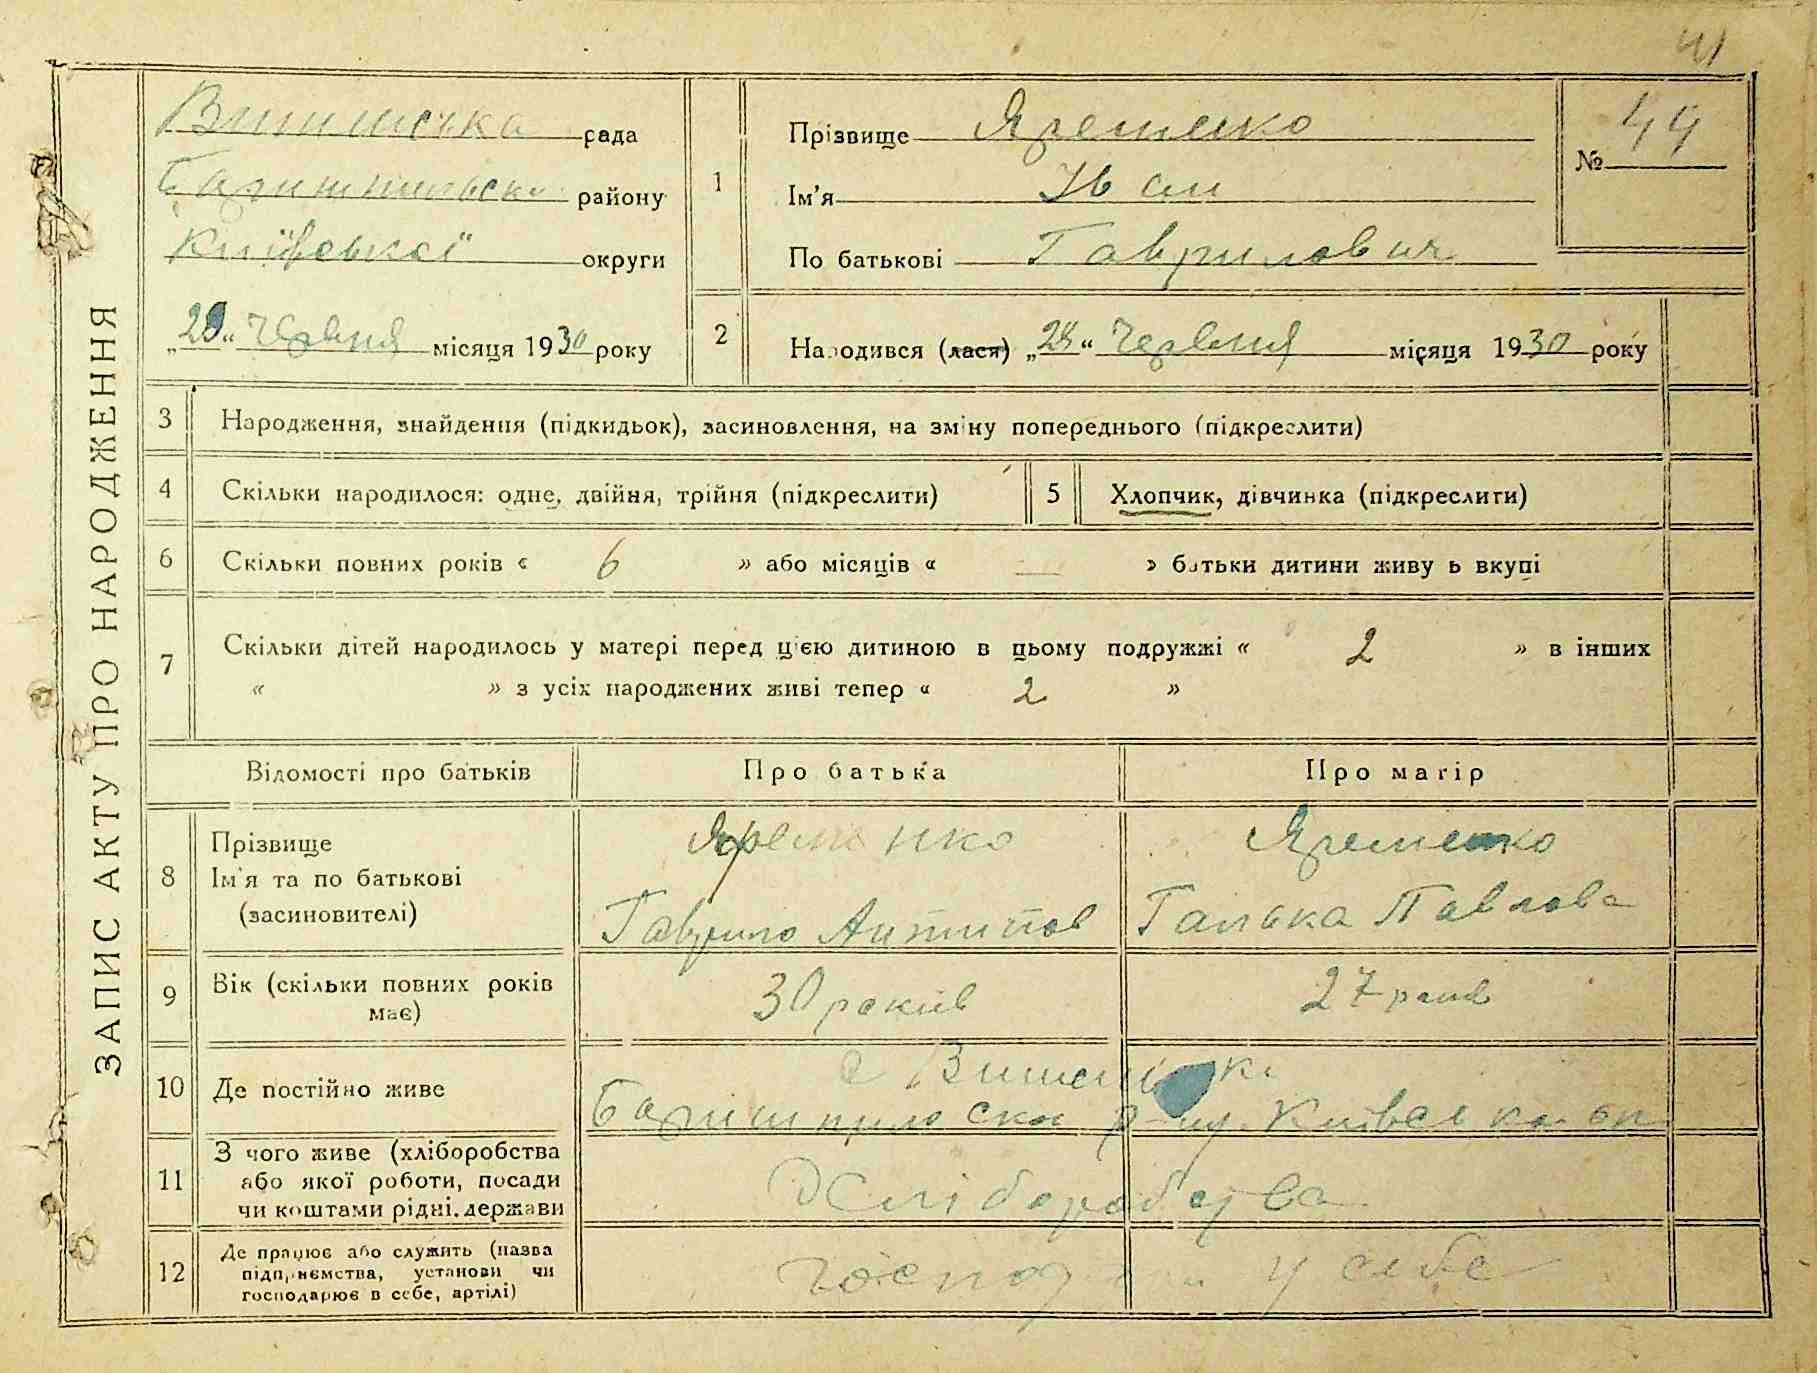 41
ЗАПИС АКТУ ПРО НАРОДЖЕННЯ
рада
району
Київської округи
„29“ Червня місяця 1930 року
1 Прізвище Яременко
Ім'я Іван
По батькові Гаврилович
№ 44
2 Народився (лася) „28“ Червня місяця 1930 року
3 Народження, знайдення (підкидьок), засиновлення, на зміну попереднього (підкреслити)
4 Скільки народилося: одне, двійня, трійня (підкреслити) 5 Хлопчик, дівчинка (підкреслити)
6 Скільки повних років « 6 » або місяців « — » батьки дитини живуть вкупі
7 Скільки дітей народилось у матері перед цією дитиною в цьому подружжі « 2 » в інших
« » з усіх народжених живі тепер « 2 »
Відомості про батьків Про батька Про матір
8 Прізвище
Ім'я та по батькові
(засиновителі)
Яременко
Гаврило Антипов
Яременко
Галька Павлова
9 Вік (скільки повних років
має)
30 років
27 років
10 Де постійно живе
с
р-ну
11 З чого живе (хліборобства
або якої роботи, посади
чи коштами рідні, держави
Хліборобства
12 Де працює або служить (назва
підприємства, установи чи
господарює в себе, артілі)
у себе